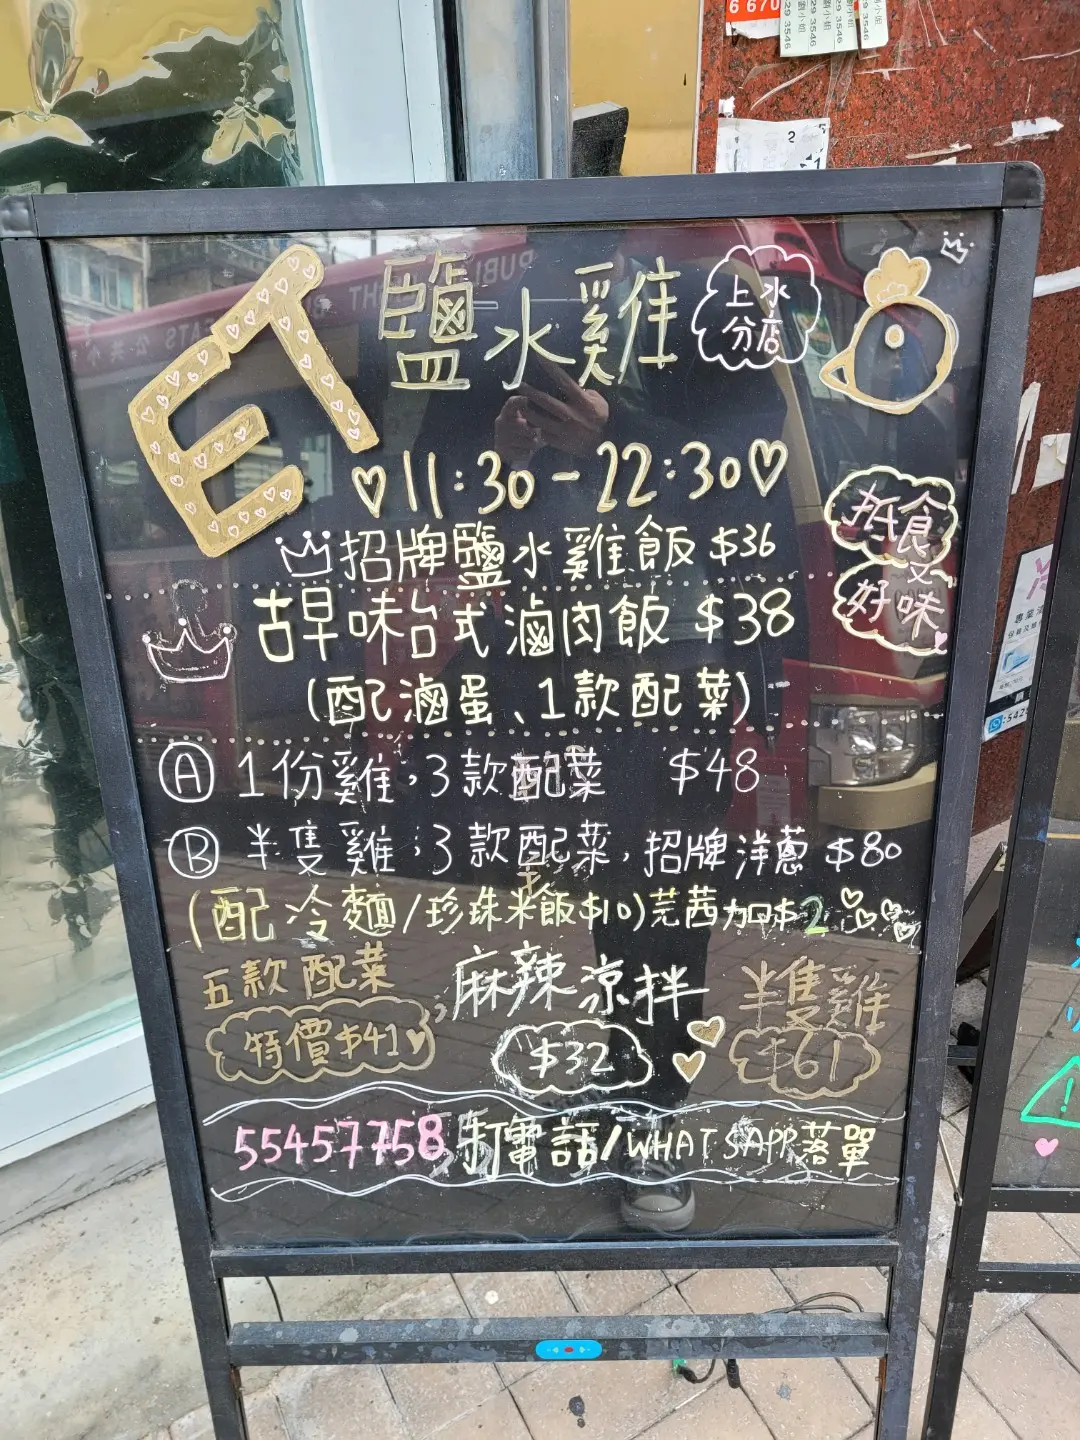 6 670
29 3546
劉小姐
29 3546
劉小姐
29 3546
小姐
ET
鹽水雞
上水
分店
11:30 - 22:30
招牌鹽水雞飯 $36
抵食
又
好味
古早味台式滷肉飯 $38
(配滷蛋、1款配菜)
A 1份雞,3款配菜 $48
B 半隻雞,3款配菜,招牌洋蔥 $80
(配冷麵/珍珠米飯$10)芫茜加$2
五款配菜
特價$41
麻辣涼拌
$32
半隻雞
$61
55457758 致電話/WHATSAPP落單
PUBLI